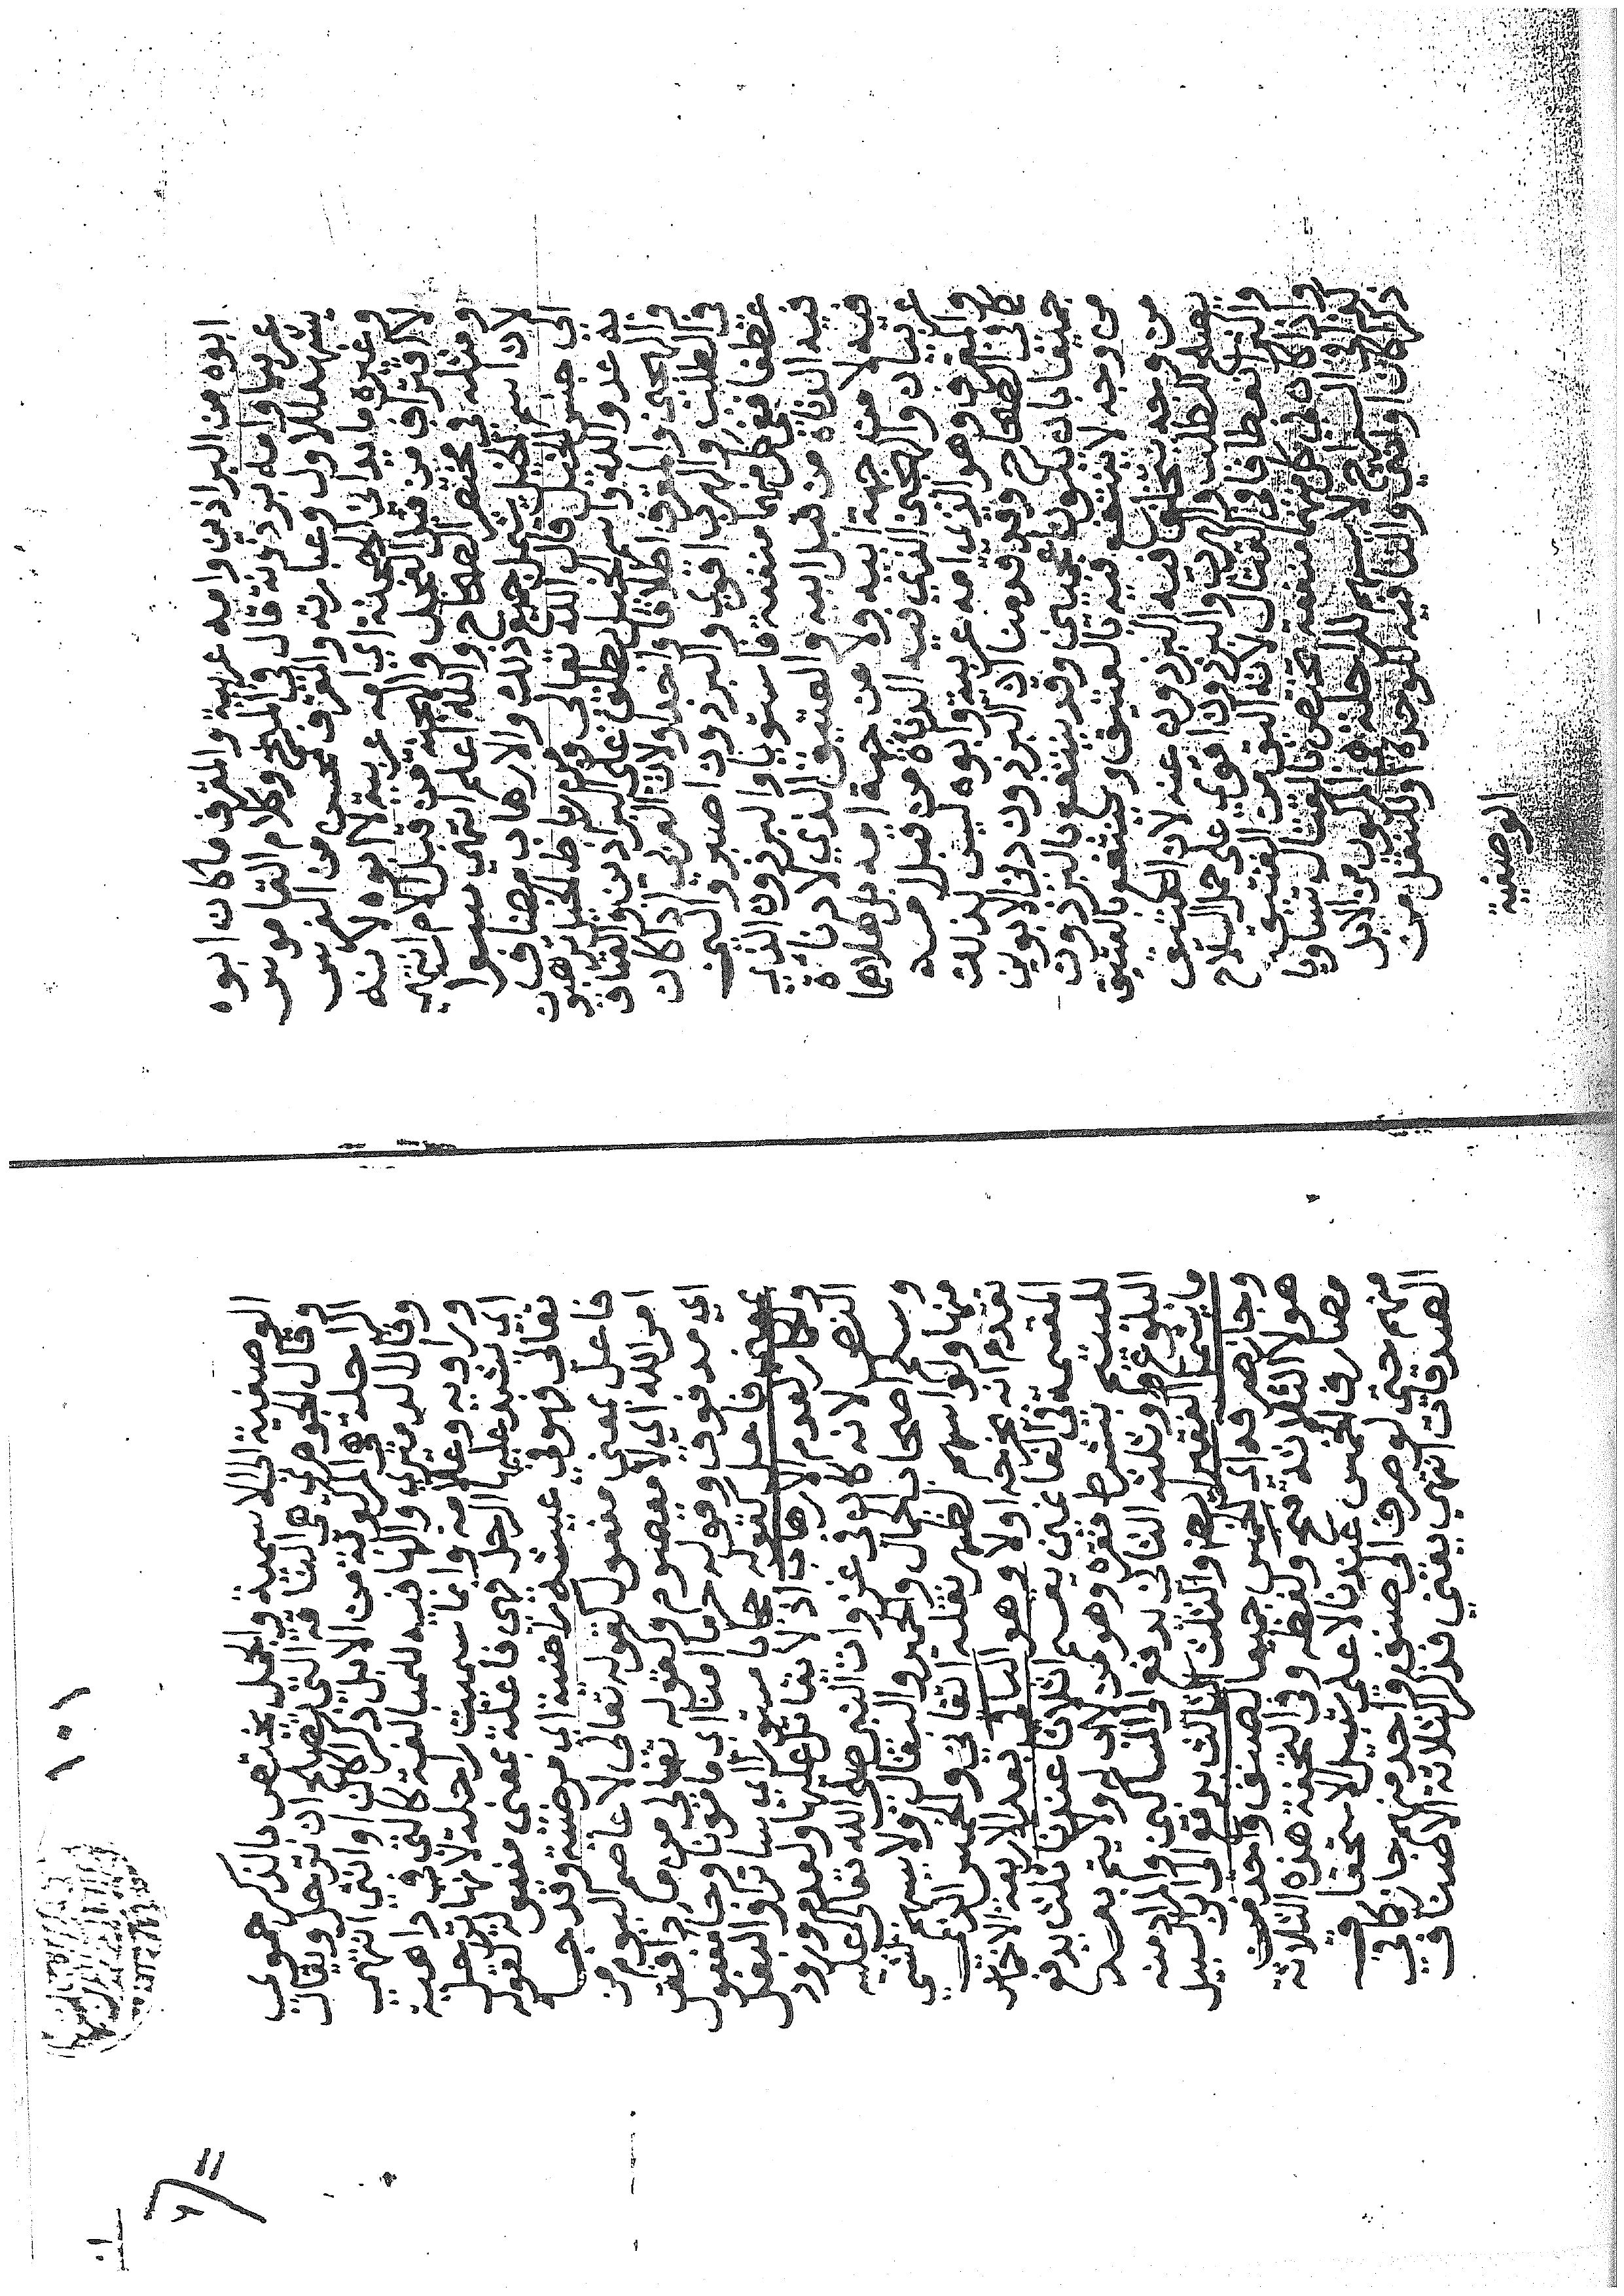 ابوه من البراذين وامه عربية والمقرف ماكان ابوه
عربيا وامه برذونة قال في المنح وكلام القاموس
يشهد للاول وعبارته والمقرف كمحسن من الفرس
وغيره ما يداني الهجنة اي امه عربية لا ابوه لانه
لاقتراف من قبل الفحل والهجنة من قبل الام انتهى
ومثله في مختصر الصحاح والله اعلم انتهى سموا
لان اسم الخيل يشمل جميع ذلك والارهاب مضاف
الى جنس الخيل قال الله تعالى ومن رباط الخيل ترهبون
به عدو الله واسم الخيل يطلق على البراذين والعتاق
والهجن والمقرف اطلاقا واحدا ولان العربي اذا كان
في الطلب والهرب اقوى والبرذون اصبر والين
عطفا ففي كل منهما منفعة فاستويا والبرذون الذي
فيه الدناءة من قبل ابيه والعتيق الذي لا دناءة
فيه لا من جهة ابيه ولا من جهة امه بل كلاهما
عربيان والهجين الذي فيه الدناءة من قبل امه
والمقرف وهو الذي امه عربية وابوه ليس كذلك
ط وفي الصحاح وقد قدمنا ان البرذون ردئ الابوين
جميعا بانه يكون اعجميين وقد ينتفع بالبرذون
من وجه لا ينتفع فيه بالعتيق وينتفع بالعتيق
من وجه يتخلف فيه البرذون عنه لان العتيق
يصلح للطلب والهرب والبرذون اقوى على حمل السلاح
والين انعطافا في القتال من العتيق
واذا كان في كل منهما منفعة تختص بالقتال تساويا
السراج لا يسهم للراحلة هو المركوب من الابل
ذكرا كان او انثى والتا فيه للوحدة او للنقل من
الوصفية
١٠١
الوصفية الى الاسمية والجمل يختص بالذكر حموي
وقال الجوهري هي الناقة التي تصلح ان ترحل ويقال
الراحلة المركوبة من الابل ذكرا كان او انثى انتهى
وقال الدميري والها فيه للمبالغة كالتي في داهية
وراوية وعلامة وانما سميت راحلة لانها ترحل
اي يشد عليها الرحل فهي فاعلة بمعنى مفعولة كقوله
تعالى فهو في عيشة راضية اي مرضية وقد جا
فاعل بمعنى مفعول كقوله تعالى لا عاصم اليوم من
امر الله اي لا معصوم وكقوله تعالى من ماء دافق
اي مدفوق وقوله حرما امنا اي مامونا وجا مفعول
بمعنى فاعل كقوله حجابا مستورا اي ساترا والبغل
والحمار لعدم الارهاب اذ لا يقاتل عليهما ولعدم ورود
النص لانه كان في غزوات النبي صلى الله تعالى عليه
وسلم اصحابه الجمال والحمير والبغال ولا يسهم لشي
منها ولو اسهم لهم لنقله والخمس الذي
تقدم انه يخرجه اولا وهو الباقي بعد الاربعة الاخماس
المقسومة في الغانمين يقسم اثلاثا عندنا ثلث يدفع
لليتيم بشرط فقره وهو من لا اب له ولا يتم بعد
البلوغ ط وثلثه الثاني يدفع للمسكين والمراد منه
ما يشمل الفقير نهر والثلث الثالث يدفع الى ابن السبيل
وجاز صرفه اي الخمس جميعا لصنف واحد من
هولاء الثلاثة فتح ولفظه وفي التحفة هذه الثلاثة
مصارف الخمس عندنا لا على سبيل الاستحقاق
منهم حتى لو صرف الى صنف واحد منهم جاز كما في
الصدقات انتهى يعني فذكر الثلاثة الاصناف